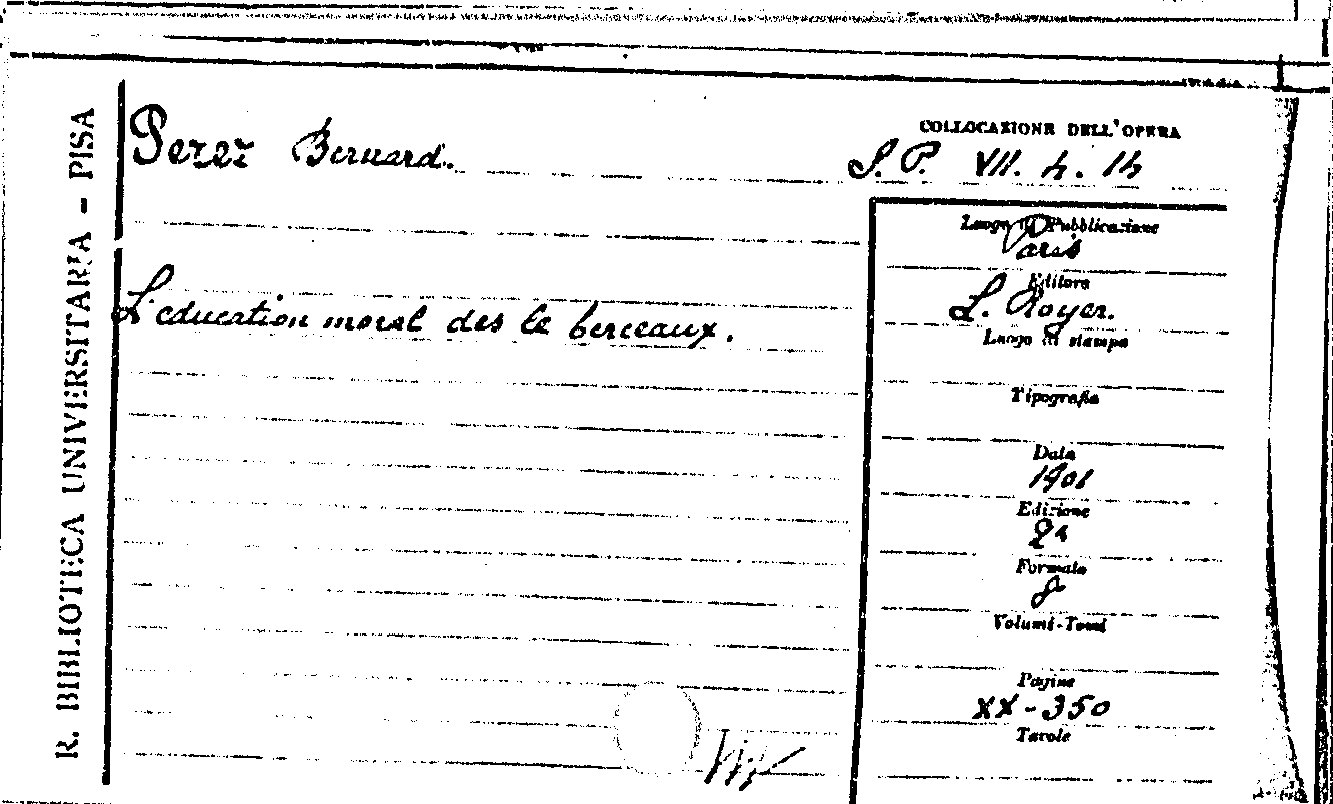 R. BIBLIOTECA UNIVERSITARIA - PISA
Perez Bernard.
COLLOCAZIONE DELL'OPERA
S. P. VII. h. 14
L'education moral des le berceaux.
Luogo di Pubblicazione
Paris
Editore
L. Royer.
Luogo di stampa
Tipografia
Data
1901
Edizione
2ª
Formato
8
Volumi-Tomi
Pagine
XX-350
Tavole